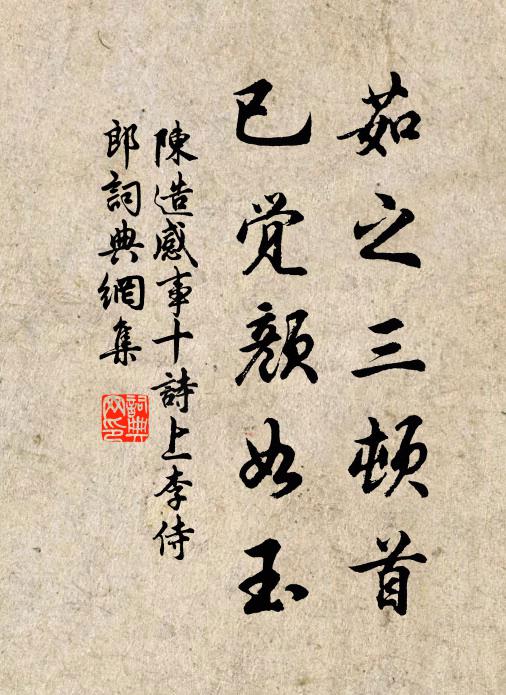 茹之三頓首
已覺顏如玉
陳造感事十詩上李侍
郎詞典網集
詞典网印